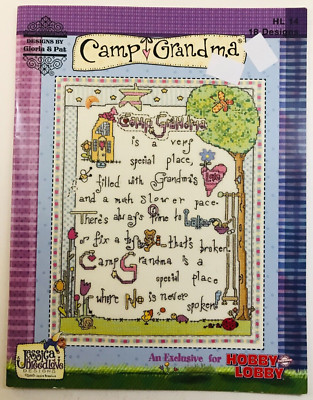 DESIGNS BY
Gloria & Pat
Camp Grandma
HL 14
18 Designs
Camp Grandma
is a very
special place,
filled with Grandma's
Love
and a much slower pace.
There's always time to
or fix a that's broken.
Camp Grandma is a
special place
where No is never
spoken!
Jessica
Needling
DESIGNS
An Exclusive for HOBBY
LOBBY